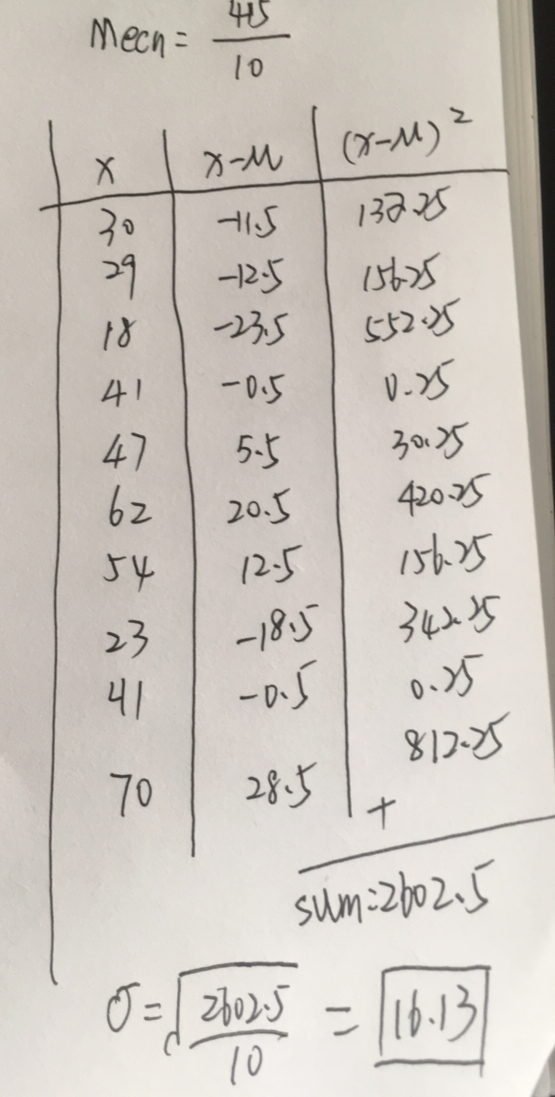 Mean = 415/10
x | x-μ | (x-μ)²
30 | -11.5 | 132.25
29 | -12.5 | 156.25
18 | -23.5 | 552.25
41 | -0.5 | 0.25
47 | 5.5 | 30.25
62 | 20.5 | 420.25
54 | 12.5 | 156.25
23 | -18.5 | 342.25
41 | -0.5 | 0.25
70 | 28.5 | 812.25
+
sum=2602.5
σ = √(2602.5/10) = 16.13